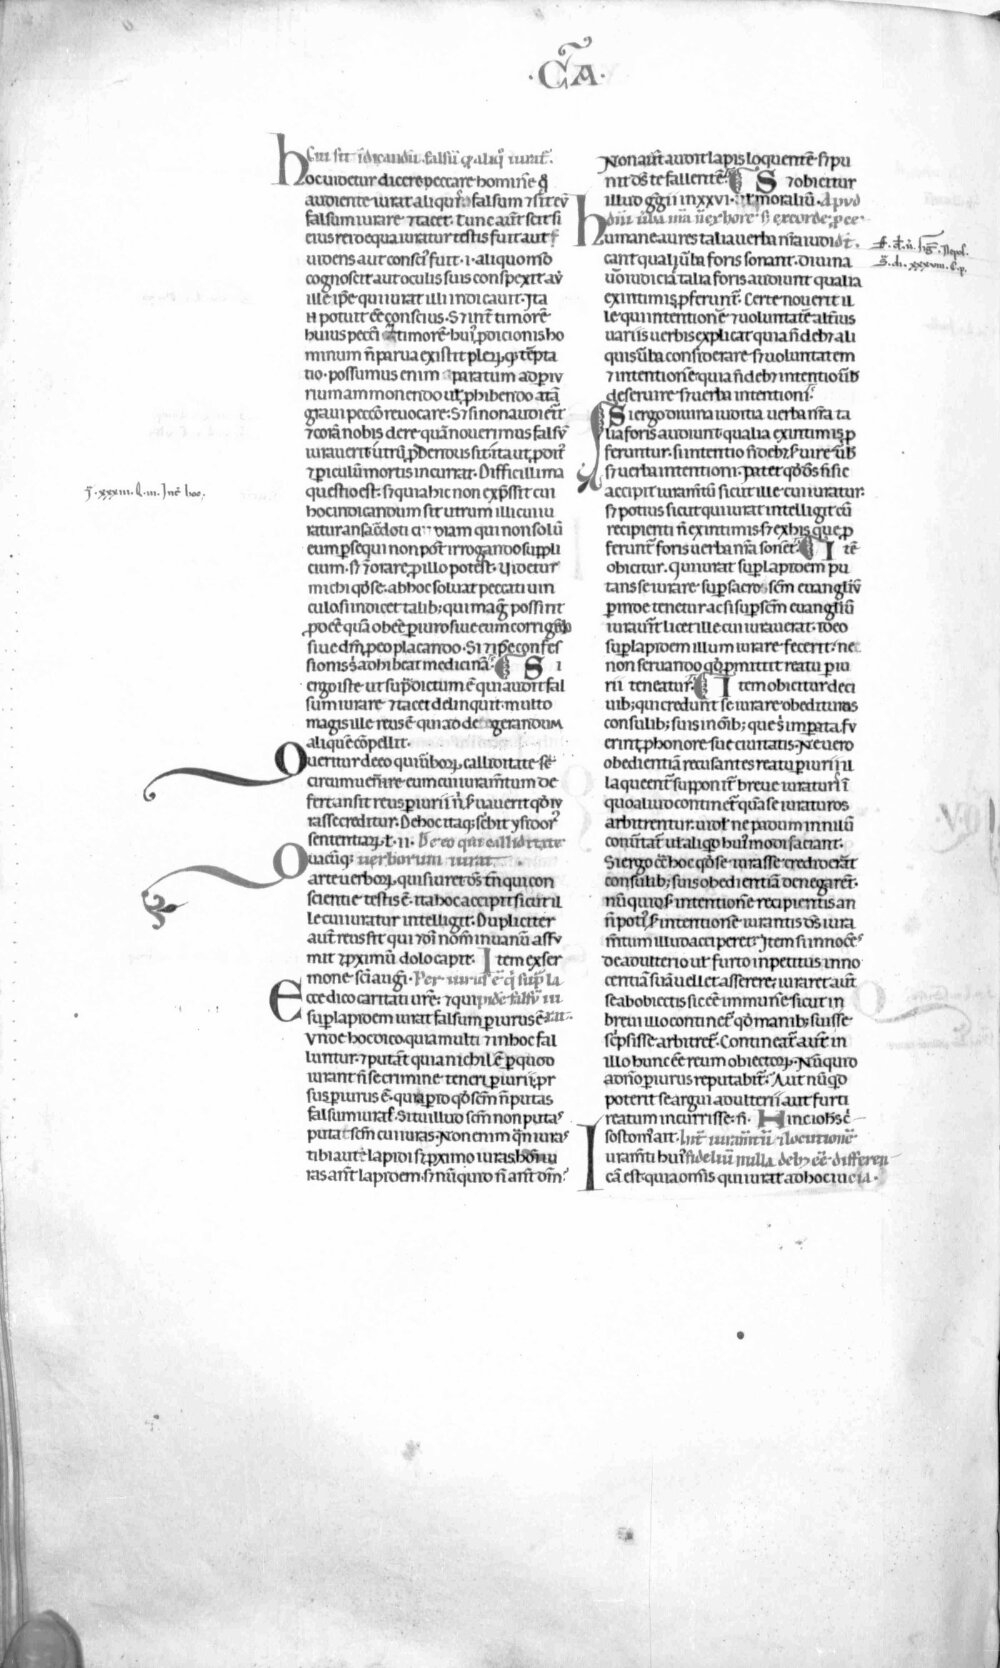 ·CA·
Cui sit indicandū falsū qđ aliq̄s iurat̄.
hoc uidetur dicere peccare hominē q̄
audiente iurat aliquis falsum ⁊ scit eū
falsum iurare ⁊ tacet. Tunc aut̄ scit si
eius rei de qua iuratur testis fuit aut
uidens aut consciꝰ fuit .i. aliquomō
cognoscit aut oculis suis conspexit aū
ille ip̄e qui iurat illi indicauit. Ita
n̄ potuit eē conscius. S; int̄ timorē
huius pecc̄i ⁊ timorē huiꝰ ꝓdicionis ho
minum n̄ parua existit pleꝝq; tēpta
tio. possumus enim paratum ad ꝑiu
rium ammonendo ut̄ ꝓhibendo a tā
graui pecc̄o reuocare. S; si non audieīt
⁊ corā nobis de re quā nouerimus falsū
iurauerit utrū ꝓdendus sit si ita ut ꝓdit̄
⁊ ꝑiculū mortis incurrat. Difficillima
questio est. S; quia hic non exp̄ssit cui
hoc indicandum sit utrum illi cui iu
ratur an sac̄doti uiam qui non solū
eum ꝑsequi non pōt irrogando suppli
cium. S; ⁊ orare ꝓ illo potest. Videtur
michi qđ se ab hoc soluat peccati uin
culo si indicet talib; qui maḡ possint
ꝓdeē quā obeē ꝑiuro siue eum corrigēdo
siue dm̄ ꝓ eo placando. Si ⁊ ip̄e confes
sionis s̄ adhibeat medicinā. S i
ergo iste ut sup̄dictum ē qui audit fal
sum iurare ⁊ tacet delinquit. multo
magis ille reus ē qui ad degerandum
aliquē cōpellit.
Queritur de eo qui ūboꝝ calliditate se
circumuen̄re eum cui iuram̄tum de
fert an sit reus ꝑiurii n̄ s̄uauerit qđ iu
rasse creditur. De hoc itaq; sc̄bit ysidorꝰ
sententiaꝝ. l. ii. De eo qui calliditate
Quacūq; uerborum iurat.
arte uerboꝝ quis iuret d̄s tn̄ qui con
scientie testis ē. ita hoc accipit sicut il
le cui iuratur intelligit. Dupliciter
aut̄ reus fit qui ⁊ dī nom̄ in uanū assu
mit ⁊ ꝓximū dolo capit. Item ex ser
mone sc̄i augī. Periurus ē q̄ suꝑ la
Ecce dico caritati ure: ⁊ qui pidē falsū iu
sup̄ lapidem iurat falsum ꝑiurus ē. rat.
Vnde hoc dico. quia multi ⁊ in hoc fal
luntur. ⁊ putāt quia nichil ē ꝑ quod
iurant n̄ se crimine teneri ꝑiurii. pr
sus ꝑiurus ē. quia ꝑ id qđ sc̄m n̄ putas
falsum iuras. Si tu illud sc̄m non putas
putat sc̄m cui iuras. Non enim q̄n iuras
tibi aut̄ lapidi s; ꝓximo iuras. homini
iuras ante lapidem. s; nūquid n̄ ante dm̄?
Non aut̄ audit lapis loquentē. S; pu
nit d̄s te fallentē. S ⁊ obicitur
illud ḡgii in xxvi. l. moraliū. Apud
dm̄ ūba nr̄a n̄ ex hore s; ex corde ꝓce-
humane aures talia uerba nr̄a iudi dt̄.
cant qualia ūba foris sonant. Diuina
uō iudicia talia foris audiunt qualia
ex intimis ꝓferunt̄. Certe nouerit il
le qui intentionē ⁊ uoluntatē alt̄ius
uariis uerbis explicat quia n̄ deb; ali
quis ūba considerare s; uoluntatem
⁊ intentionē quia n̄ deb; intentio ūb
deseruire s; uerba intentioni.
Si ergo diuina iudicia uerba nr̄a ta
lia foris audiunt qualia ex intimis ꝓ
feruntur. si intentio n̄ deb; s̄uire ūb
s; uerba intentioni. Patet qđ d̄s n̄ sic
accipit iuram̄tū sicut ille cui iuratur.
S; potius sicut qui iurat intelligit cū
recipienti n̄ ex intimis s; ex his que ꝓ
ferunt̄ foris uerba nr̄a sonēt. I tē
obicitur. Qui iurat sup̄ lapidem pu
tans se iurare sup̄ sacros̄c̄m euangliū
ꝑinde tenetur ac si sup̄ sc̄m euangliū
iurauīt licet ille cui iurauerat. ideo
sup̄ lapidem illum iurare fecerit. ne
non seruando qđ ꝓmittit reatu ꝑiu
rii teneatur. I tem obicitur de ci
uib; qui credunt se iurare obedituros
consulib; suis in om̄ib; que s̄ imp̄ata fu
erint ꝓ honore sue ciuitatis. Ne uero
obedientiā recusantes reatu ꝑiurii il
laqueent̄ supponit̄ breue iuraturi ī
quo aliud continet̄ quā se iuraturos
arbitrentur. uidꝫ ne padum in nilū
conūtāt uł aliqđ huiꝰmodi faciant.
Si ergo c̄ hoc qđ se iurasse credideāt
consulib; suis obedientiā denegarēt.
nūquid s̄ intentionē recipientis an
n̄ potiꝰ s̄ intentionē iurantis d̄s iura
m̄tum illud acciperet? Item si innocēs
de adulterio uł furto inpetitus inno
centiā suā uellet asserere. iuraret aut̄
se ab obiectis sic eē immunē sicut in
breui illo continet̄ qđ manib; suis se
sc̄psisse arbitret̄. Contineat̄ aut̄ in
illo hunc eē reum obiectoꝝ. Nūquid
a dn̄o ꝑiurus reputabit̄? Aut nūqđ
poterit se argui adulterii aut furti
reatum incurrisse. n̄. Hinc iohs̄ cr̄
sostomꝰ ait. Int̄ iuram̄tū ⁊ locutionē
Iuram̄ti huiꝰ fidelium nulla deb; eē differen
cā est quia om̄is qui iurat ad hoc iu cia.